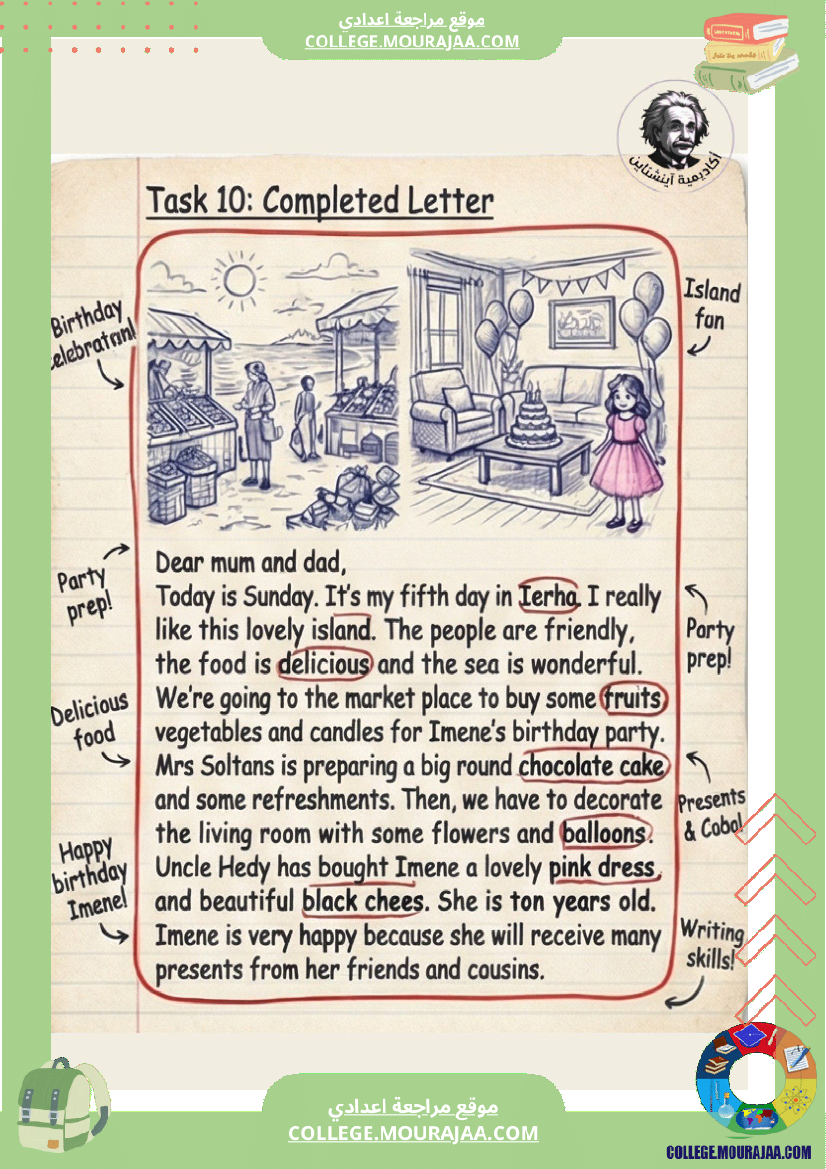 موقع مراجعة اعدادي
COLLEGE.MOURAJAA.COM
أكاديمية آينشتاين
Task 10: Completed Letter
Birthday
celebratran!
Island
fan
Dear mum and dad,
Today is Sunday. It's my fifth day in Ierha. I really
like this lovely island. The people are friendly,
the food is delicious and the sea is wonderful.
We're going to the market place to buy some fruits
vegetables and candles for Imene's birthday party.
Mrs Soltans is preparing a big round chocolate cake
and some refreshments. Then, we have to decorate
the living room with some flowers and balloons.
Uncle Hedy has bought Imene a lovely pink dress
and beautiful black chees. She is ton years old.
Imene is very happy because she will receive many
presents from her friends and cousins.
Party
prep!
Delicious
food
Happy
birthday
Imene!
Party
prep!
Presents
& Cobal
Writing
skills!
موقع مراجعة اعدادي
COLLEGE.MOURAJAA.COM
COLLEGE.MOURAJAA.COM